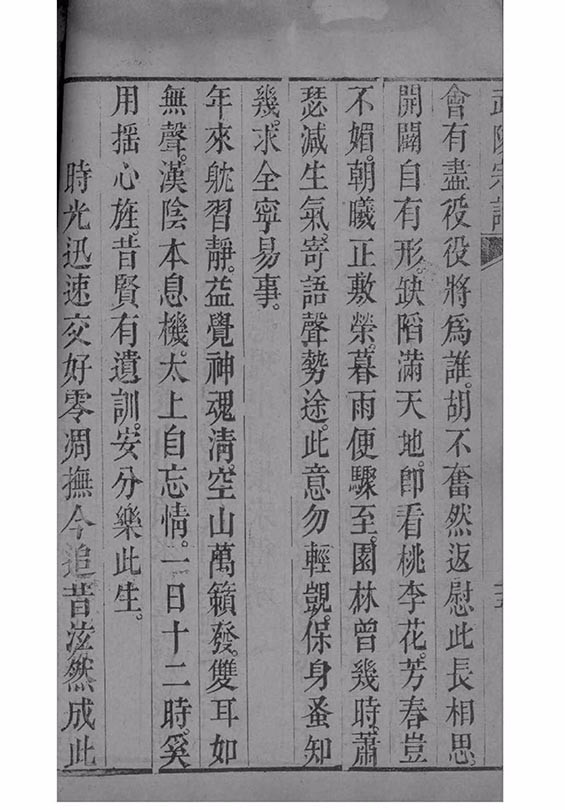 武陵宗譜
會有盡役役將爲誰。胡不奮然返慰此長相思。
開闢自有形。缺陷滿天地。卽看桃李花。芳春豈
不媚。朝曦正敷榮。暮雨便驟至。園林曾幾時。蕭
瑟減生氣。寄語聲勢途。此意勿輕覬。保身蚤知
幾。求全寧易事。
年來躭習靜。益覺神魂淸。空山萬籟發。雙耳如
無聲。漢陰本息機。太上自忘情。一日十二時。奚
用搖心旌。昔賢有遺訓。安分樂此生。
時光迅速交好零凋撫今追昔泫然成此